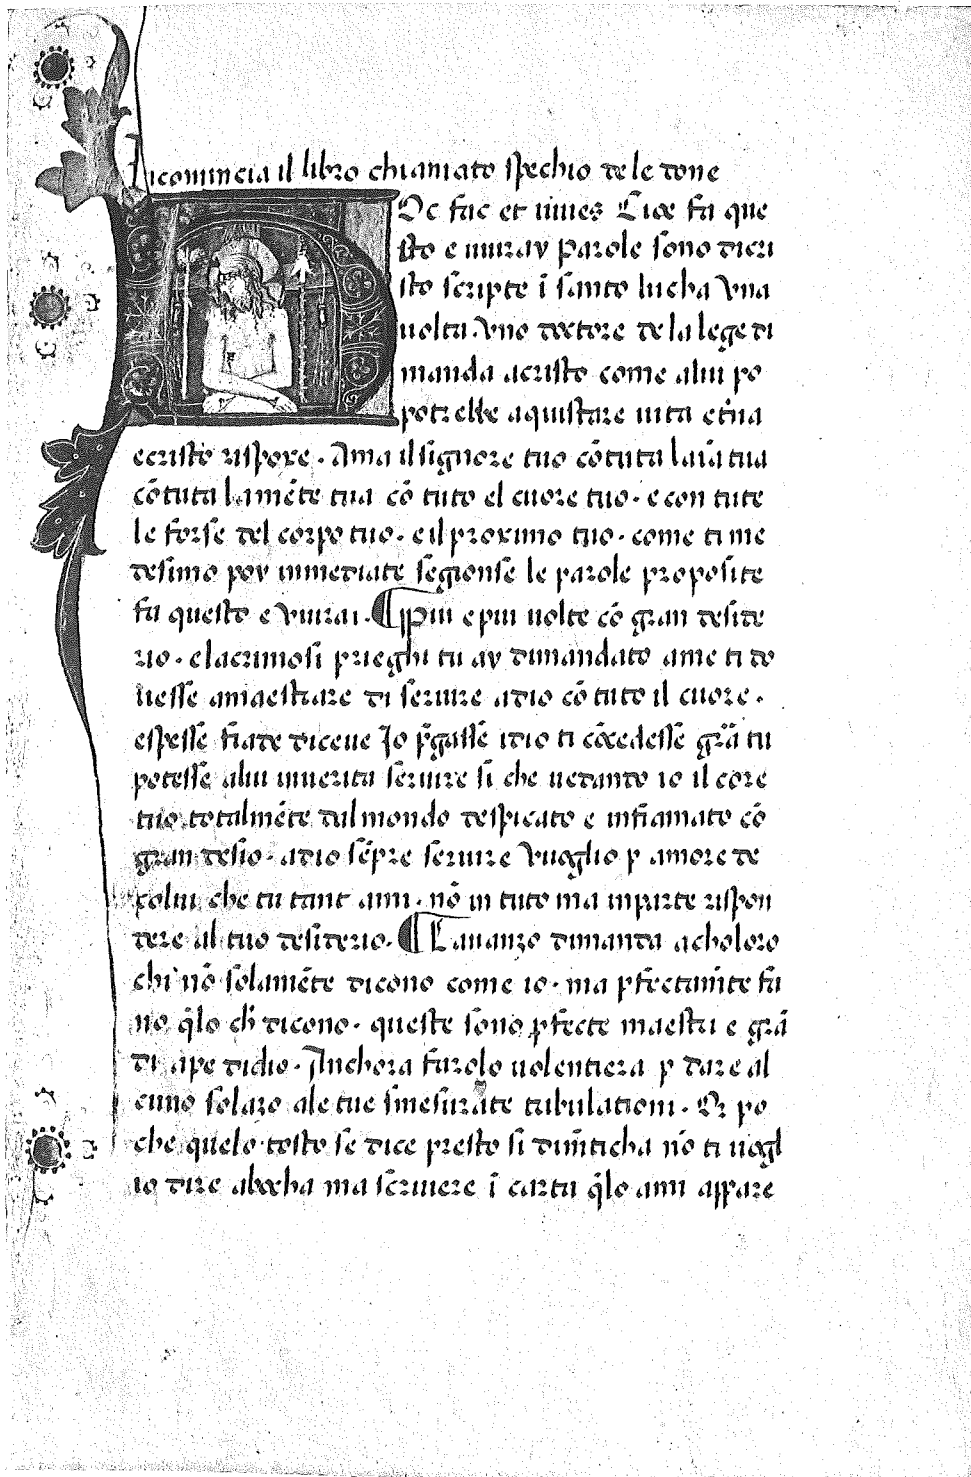 Incomincia il libro chiamato spechio de le done
Oc fac et uiues Cioe fa que
sto e uiurav parole sono dicri
sto scripte ī santo lucha Vna
uolta. vno doctore de la lege di
manda acristo come alui po
potrebbe aquistare uita et̄na
ecristo rispoxe. Ama il signore tuo cō tuta laīa tua
cō tuta la mēte tua cō tuto el cuore tuo. e con tute
le forse del corpo tuo. e il proximo tuo. come ti me
desimo poy inmediate segionse le parole proposite
fa questo e viurai. ¶ piu e piu uolte cō gran deside
rio. e lacrimosi prieghi tu ay dimandato a me ti do
uesse amaestrare di seruire a dio cō tuto il cuore.
e spesse fiate diceue Jo p̄gasse idio ti cōcedesse grā tu
potesse alui in uerita seruire si che uedando io il core
tuo totalmēte dal mondo despicato e infiamato cō
gran desio. a dio sēpre seruire Vuoglio p amore de
colui che tu tant ami. nō in tuto ma in parte rispon
dere al tuo desiderio. ¶ L auanzo dimanda a choloro
chi nō solamēte dicono come io. ma pfectam̄te fa
no q̄lo ch̄ dicono. queste sono pfecte maestri e grā
di ape didio. Anchora farolo uolentiera p dare al
cuno solazo ale tue smesurate tribulationi. Or po
che quelo tosto se dice presto si dim̄ticha nō ti uogl
io dire abocha ma scriuere ī carta q̄lo ami appare